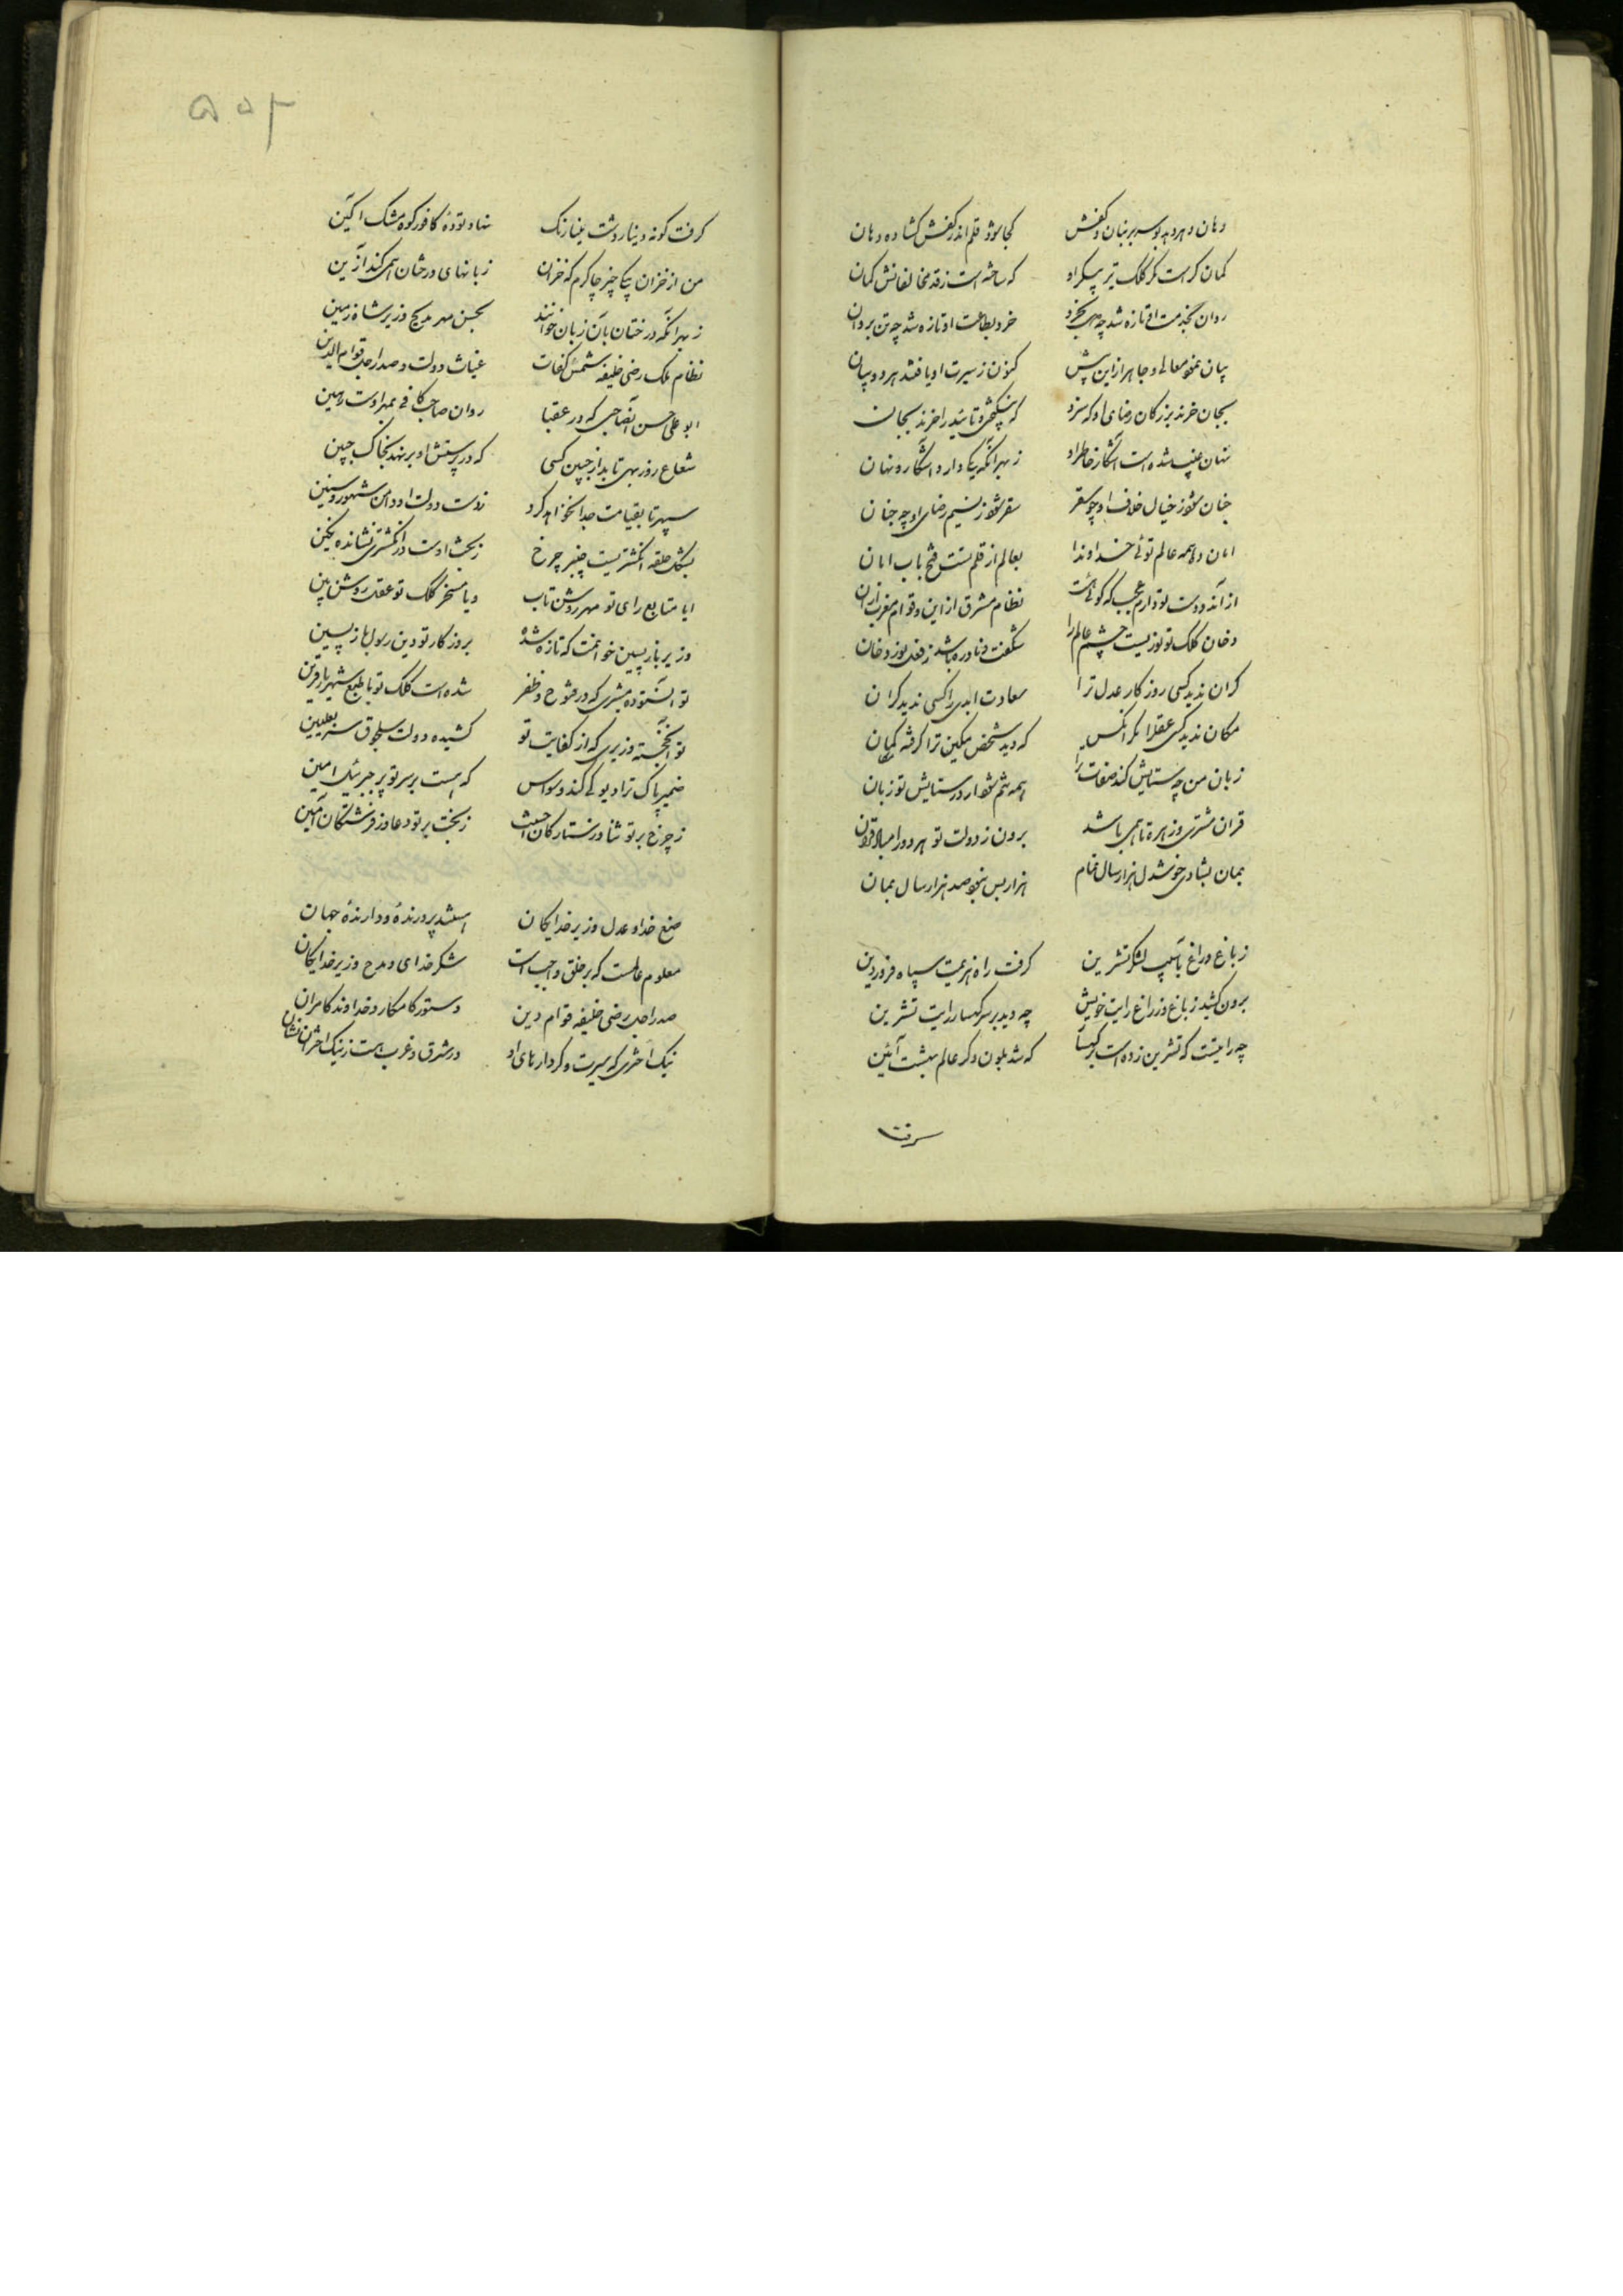 دهان دهر دهد بوسه بر بنان و کفش کجا بود قلم اندر کفش کشاده دهان
کمان کر است مکر کلک تیر پیکر او که ساخته است ز قد مخالفانش کمان
روان بخدمت او تازه شد چه جان بخرد خرد بطاعت او تازه شد چه تن بروان
کنون ز سیرت او یافتند هر دو بیان
بجان خرند بزرکان رضای او که سزد
نهان غیب شده است آشکار خاطر او ز بهر آنکه یکی دارد آشکار و نهان
جنان شود ز خیال خلاف او چو سقر سقر شود ز نسیم رضای او چه جنان
امان ده همه عالم توئی خداوندا بعالم از قلم تست فتح باب امان
نظام مشرق از این و قوام مغرب از آن
دخان کلک تو نوریست چشم عالم را شکفت و نادره باشد ز فعل نور دخان
کران ندید کسی روزکار عدل ترا سعادت ابدی را کسی ندید کران
مکان ندید کسی عقل را مکر آنکس که دید شخص مکین ترا کرفته مکان
زبان من چه ستایش کند صفات ترا همه تنم شود ار در ستایش تو زبان
قران مشتری و زهره تا همی باشد برون ز دولت تو هر دو را مباد قران
بمان بشادی و خوشدل هزار سال تمام
ز باغ و راغ بآسیب لشکر تشرین کرفت راه هزیمت سپاه فروردین
برون کشید ز باغ و ز راغ رایت خویش چه دید بر سر کهسار رایت تشرین
چه رایتست که تشرین زده است بر کهسار که شد بلون دکر عالم بهشت آئین
کرفت کونه دینار دشت مینا رنک نهاد توده کافور کوه مشک اکین
من از خزان بیکی چیز شاکرم که خزان زبانهای درختان همی کند زرین
ز بهر آنکه درختان بآن زبان خوانند بحسن مهر مدیح وزیر شاه زمین
نظام ملک رضی خلیفه شمس کفات غیاث دولت و صدر اجل قوام الدین
ابو علی حسن آن صاحبی که در عقبا روان صاحب کافی بمهر اوست رهین
شعاع روز بهی تابد از جبین کسی که در پرستش او بر نهد بخاک جبین
سپهر تا بقیامت جدا نخواهد کرد ز دست دولت او دامن شهور و سنین
بشکل حلقه انکشتریست چنبر چرخ ز بخت اوست در انکشتری نشانده نکین
ایا متابع رای تو مهر روشن تاب و یا مسخر کلک تو عقل روشن بین
وزیر بازپسین خوانمت که تازه شده بروزکار تو دین رسول بازپسین
تو آن ستوده مشیری که در فتوح و ظفر شده است کلک تو با طبع شهریار قرین
تو آن خجسته وزیری که از کفایت تو کشیده دولت سلجوق سر بعلیین
ضمیر پاک ترا دیو کی کند وسواس که هست بر سر تو پر جبرئیل امین
ز چرخ بر تو ثنا وز ستارکان احسنت ز بخت بر تو دعا وز فرشتکان آمین
صنع خدا و عدل وزیر خدایکان هستند پرورنده و دارنده جهان
معلوم عالمست که بر خلق واجبست شکر خدای و مدح وزیر خدایکان
صدر اجل رضی خلیفه قوام دین دستور کامکار و خداوند کامران
نیک اختری که سیرت و کردارهای او در شرق و غرب هست ز نیک اختران نشان